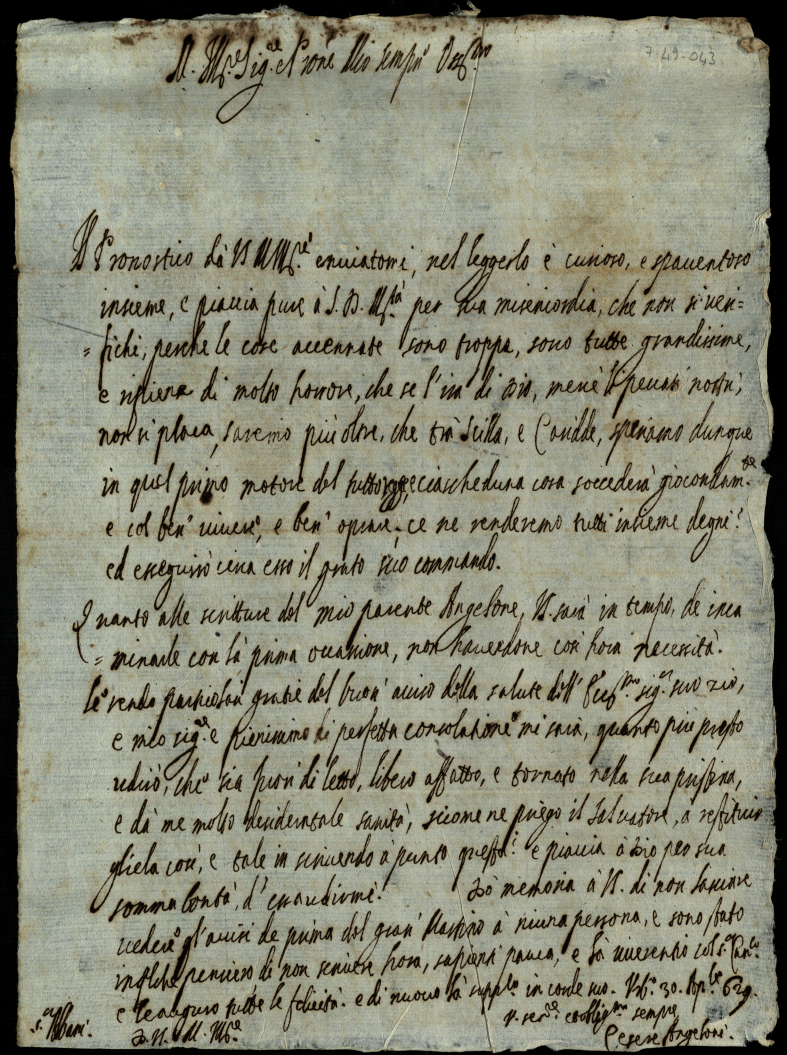 M. Ill.re Sig.re e P.rone Mio sempre Oss.mo
7-49-043
Il Pronostico dà VS M Ill.re enviatomi, nel leggerlo è curioso, e spaventoso
insieme, e piaccia pure à S. D. M.tà per sua misericordia, che non si veri=
=fichi, perche le cose accennate sono troppa, sono tutte grandissime,
e ripiene di molto horrore, che se l'ira di Dio, mercè li peccati nostri,
non si placa, saremo più oltre, che trà Scilla, e Cariddе, speriamo dunque
in quel primo motore del tutto, ciascheduna cosa soccederà giocondam.te
e col ben' vivere, e ben' oprare ce ne renderemo tutti insieme degni:
ed esseguirò circa esso il grato suo commando.
Quanto alle scritture del mio parente Angelone, VS. sarà in tempo, de inca
=minarle con la prima occasione, non havendone così hora necessità.
Le rendo particolar gratie del buon' aviso della salute dell' Ecc.mo sig.r suo zio,
e mio sig.re e pienissimo di perfetta consolatione mi sarà, quanto più presto
udirò, che sia fuori di letto, libero affatto, e tornato nella sua pristina,
e dà me molto desiderata sanità, sicome ne priego il Salvatore, a restituir
gliela così, e tale in scrivendo à punto questa: e piaccia à Dio per sua
somma bontà, d' essaudirmi. Dò memoria à VS. di non lasciare
vedere gl'avisi de prima del gran' Mastino à niuna persona, e sono stato
pensiero di non scrivere hora, sapienti pauca, e fò riverentia col
e le auguro tutte le felicità. e di nuovo in corde suo. 30. 629.
D. VS. M. Ill.re
se.re oblig.mo sempre
Cesare Angeloni.